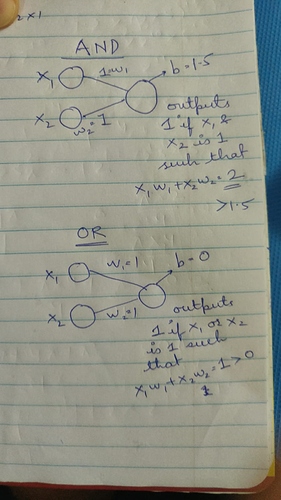 2x1
AND
x₁ 1=w₁ b=1.5
x₂ w₂=1
outputs
1 if x₁ &
x₂ is 1
such that
x₁w₁+x₂w₂=2
>1.5
OR
x₁ w₁=1 b=0
x₂ w₂=1
outputs
1 if x₁ or x₂
is 1 such
that
x₁w₁+x₂w₂=1>0
1